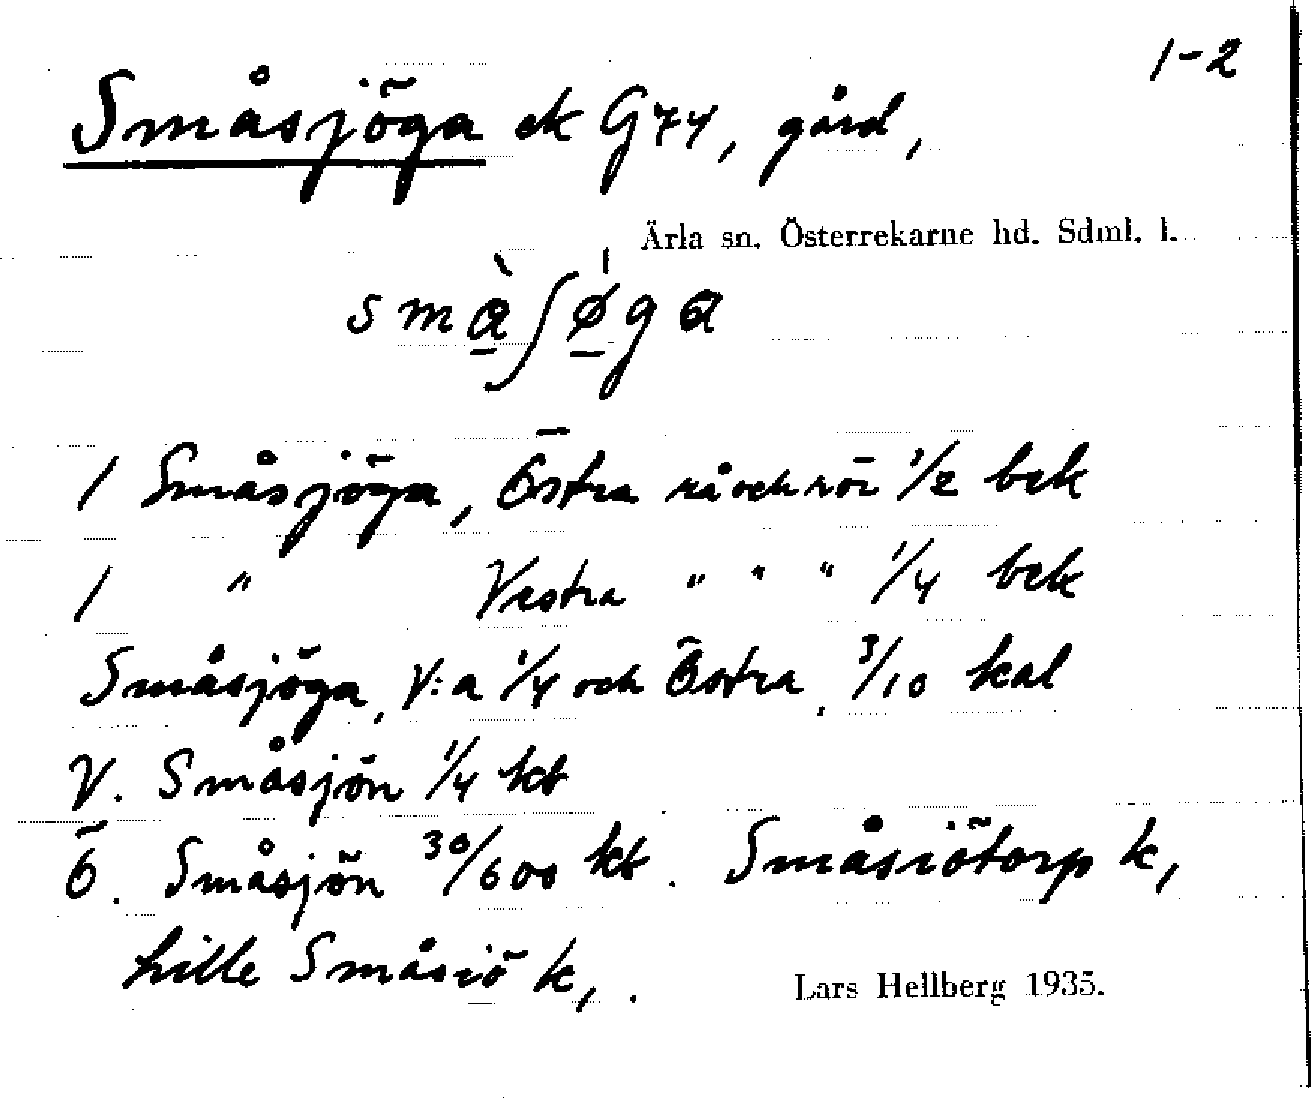 1-2
Småsjöga ek G74, gård,
Ärla sn. Österrekarne hd. Sdml. l.
1 Småsjöga, Östra rå och rör 1/2 bek
1 " Vestra " " " 1/4 bek
Småsjöga, V:a 1/4 och Östra, 3/10 kal
V. Småsjön 1/4 kb
Ö. Småsjön 30/600 kb. Småsiötorp k,
hille Småsiö k,.
Lars Hellberg 1935.